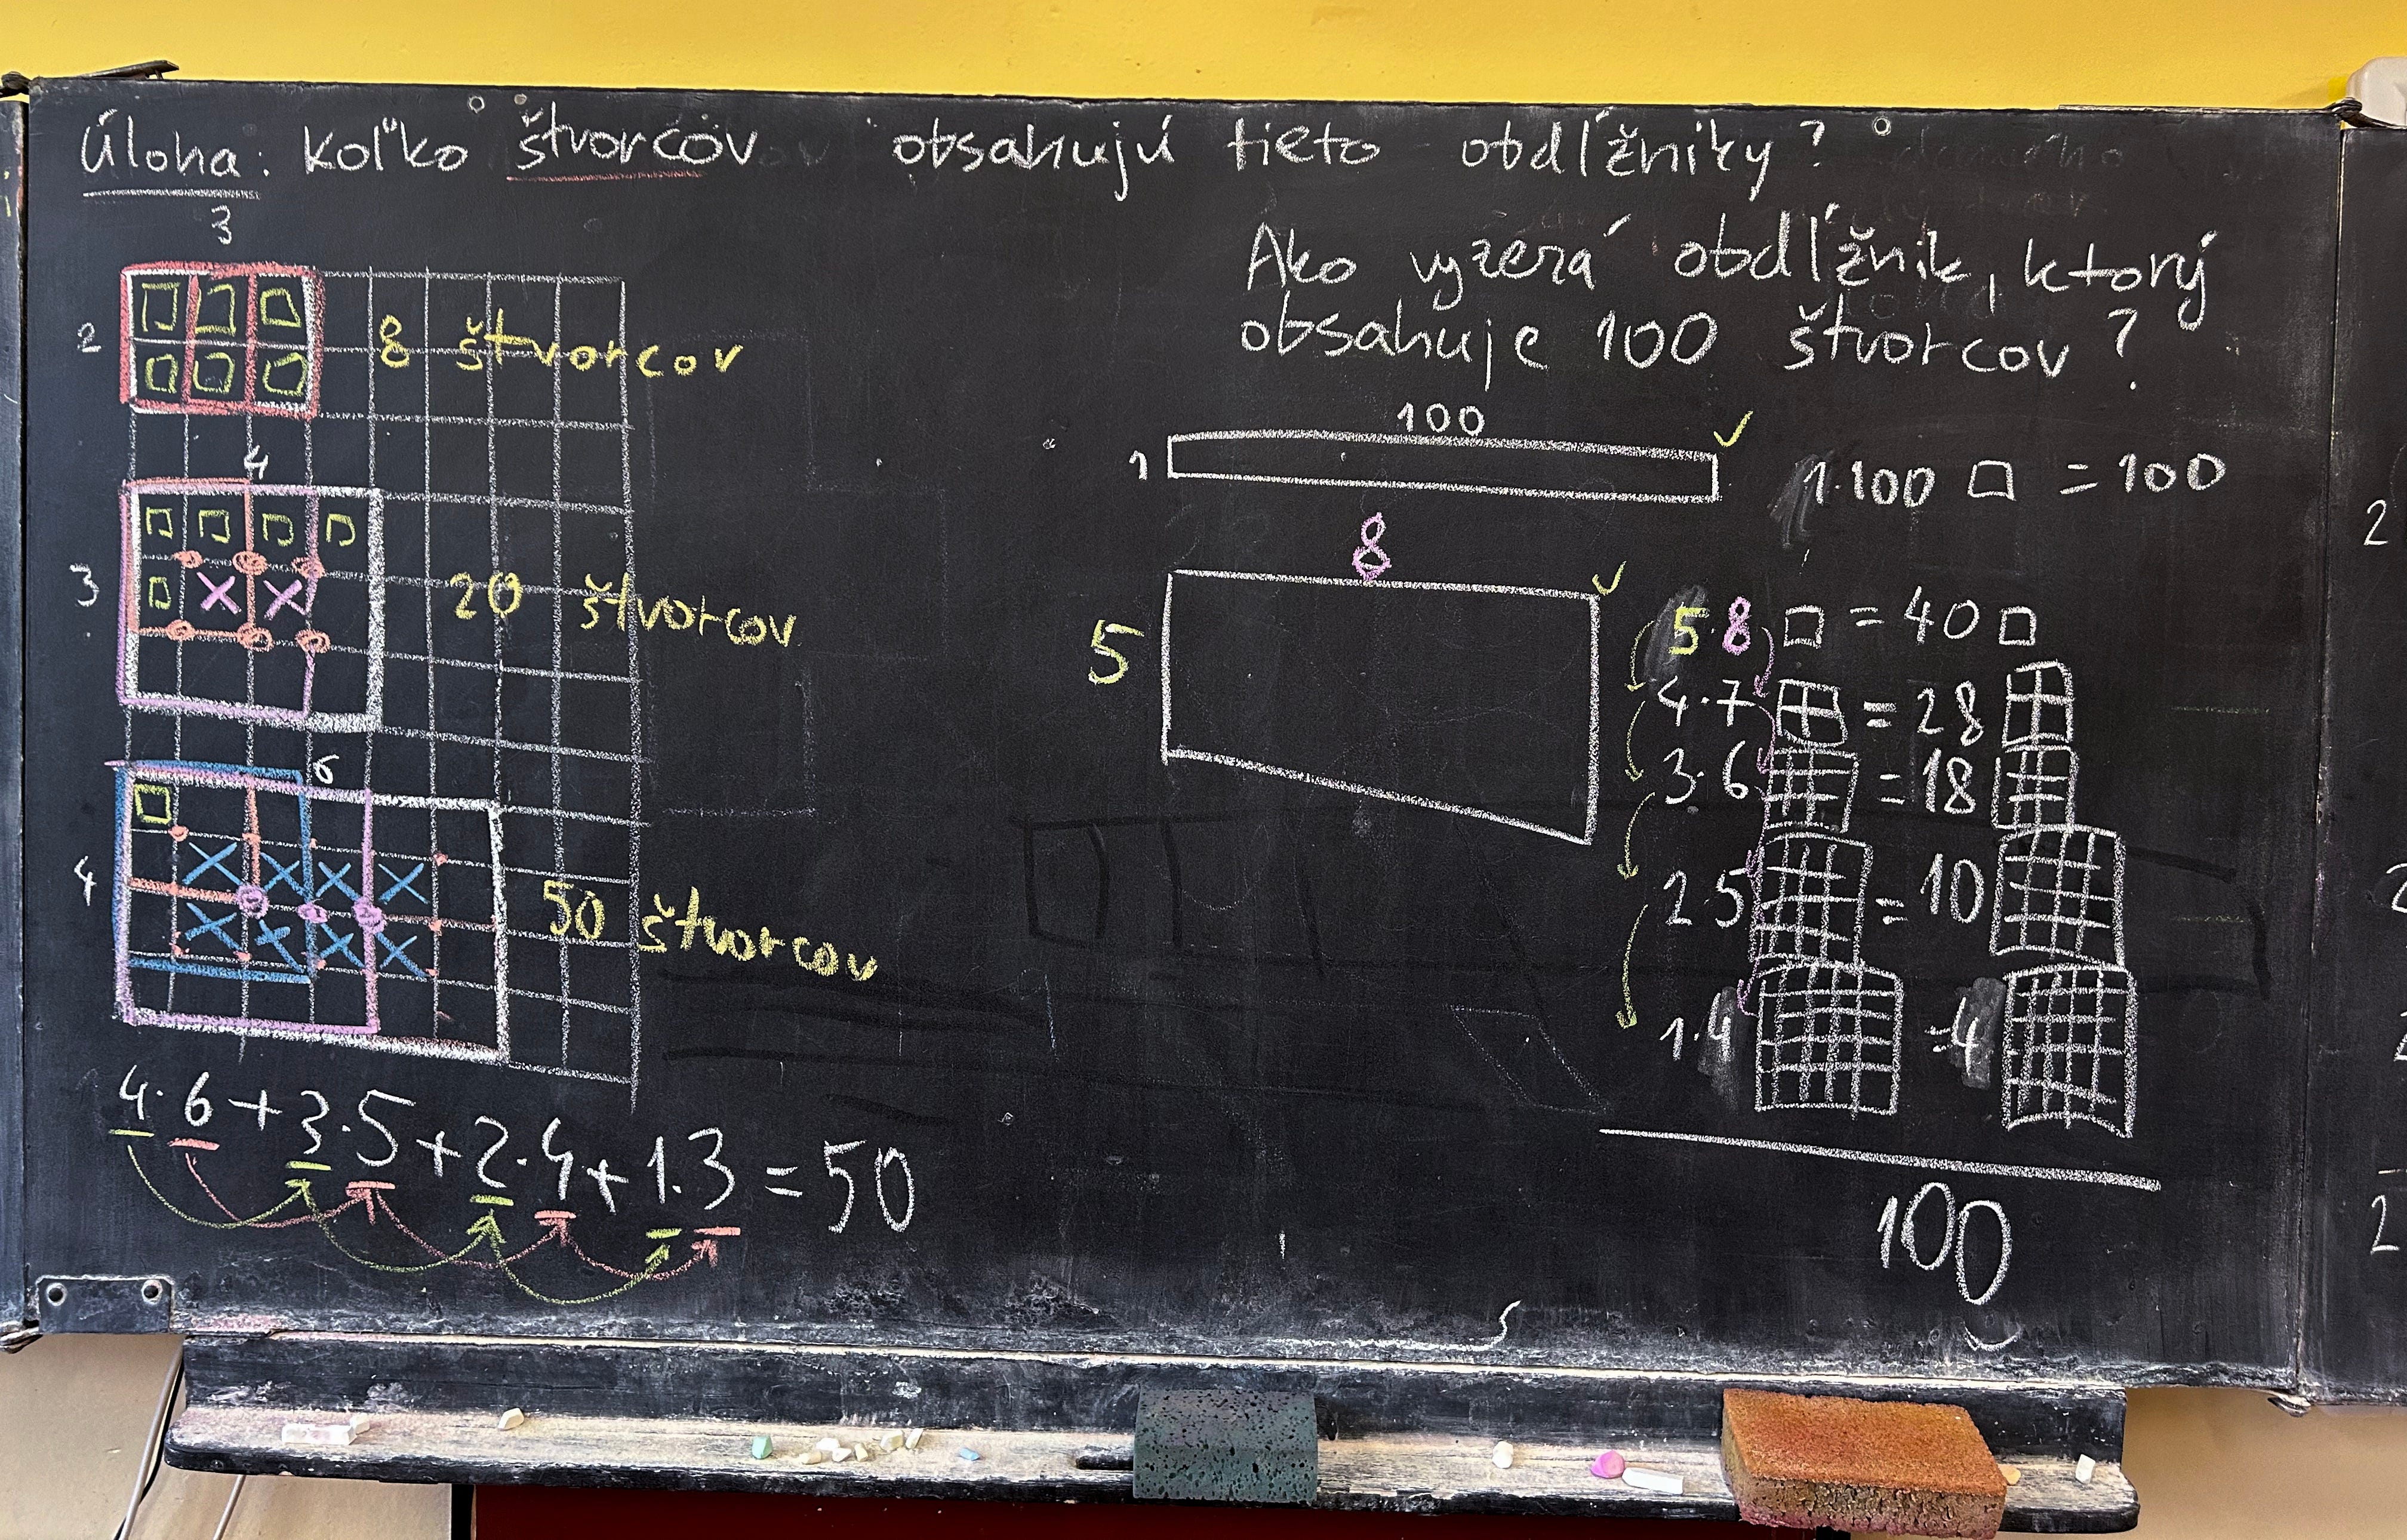 Úloha: Koľko štvorcov obsahujú tieto obdĺžniky?
3
2
8 štvorcov
4
3
20 štvorcov
6
4
50 štvorcov
4·6+3·5+2·4+1·3=50
Ako vyzerá obdĺžnik, ktorý
obsahuje 100 štvorcov?
100
1
1·100 □ = 100
8
5
5·8 □ = 40 □
4·7 = 28
3·6 = 18
2·5 = 10
1·4 = 4
100
2
2